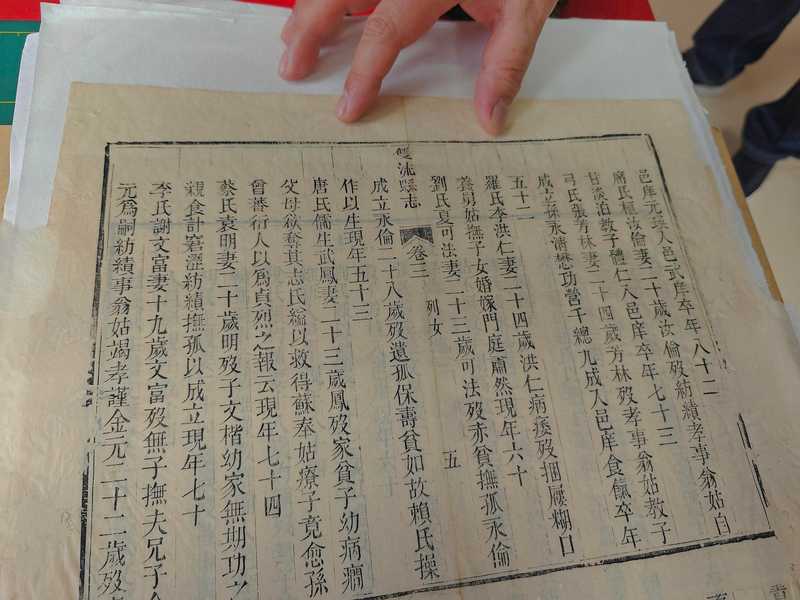 邑庠元英入邑武庠卒年八十二
席氏權汝倫妻二十歲汝倫歿紡績孝事翁姑自
甘淡泊教子體仁入邑庠卒年七十三
弓氏張芳林妻二十四歲芳林歿孝事翁姑教子
成立孫永清懋功營千總九成入邑庠食餼卒年
五十二
羅氏李洪仁妻二十四歲洪仁病痿歿捆屨糊口
養舅姑撫子女婚嫁門庭肅然現年六十
劉氏夏可法妻二十三歲可法歿赤貧撫孤永倫
雙流縣志 卷三 列女 五
成立永倫二十八歲歿遺孤保壽貧如故賴氏操
作以生現年五十三
唐氏儒生武鳳妻二十三歲鳳歿家貧子幼病
父母欲奪其志氏縊以救得蘇奉姑療子竟愈孫
曾蕃衍人以爲貞烈之報云現年七十四
蔡氏袁明妻二十歲明歿子文楷幼家無期功之
親食計窘澀紡績撫孤以成立現年七十
李氏謝文富妻十九歲文富歿無子撫夫兄子金
元爲嗣紡績事翁姑竭孝謹金元二十二歲歿